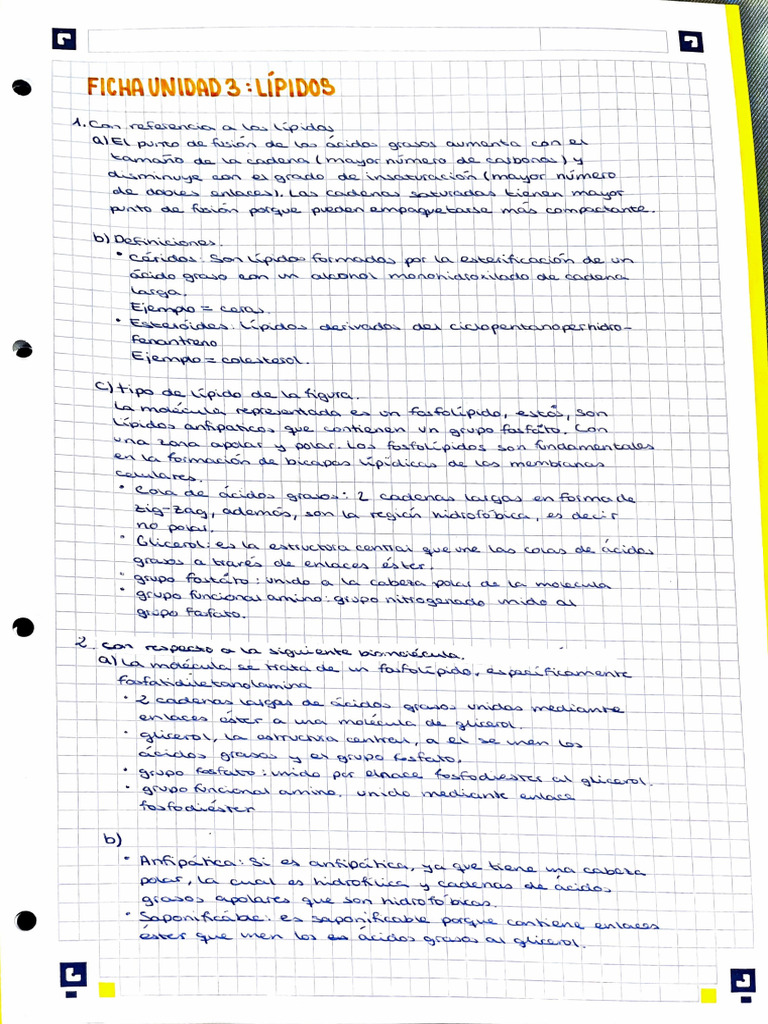 FICHA UNIDAD 3 : LÍPIDOS
1. Con referencia a los lípidos
a) El punto de fusión de los ácidos grasos aumenta con el
tamaño de la cadena (mayor número de carbonos) y
disminuye con el grado de insaturación (mayor número
de dobles enlaces). Las cadenas saturadas tienen mayor
punto de fusión porque pueden empaquetarse más compactante.
b) Definiciones.
• Céridos: Son lípidos formados por la esterificación de un
ácido graso con un alcohol monohidroxilado de cadena
larga.
Ejemplo = ceras.
• Esteróides: Lípidos derivados del ciclopentanoperhidro-
fenantreno
Ejemplo = colesterol.
c) tipo de lípido de la figura.
La molécula representada es un fosfolípido, estos, son
lípidos anfipáticos que contienen un grupo fosfato. Con
una zona apolar y polar. Los fosfolípidos son fundamentales
en la formación de bicapas lipídicas de las membranas
celulares.
• Cola de ácidos grasos: 2 cadenas largas en forma de
zig-zag, además, son la región hidrofóbica, es decir
no polar.
• Glicerol: es la estructura central que une las colas de ácidos
grasos a través de enlaces éster.
• grupo fosfáto: unido a la cabeza polar de la molecula
• grupo funcional amino: grupo nitrogenado unido al
grupo fosfato.
2. con respecto a la siguiente biomolécula.
a) La molécula se trata de un fosfolípido, específicamente
fosfatidiletanolamina
• 2 cadenas largas de ácidos grasos unidas mediante
enlaces éster a una molécula de glicerol.
• glicerol, la estructura central, a el se unen los
ácidos grasos y el grupo fosfato.
• grupo fosfato: unido por elnace fosfodiester al glicerol.
• grupo funcional amino. unido mediante enlace
fosfodiéster
b)
• Anfipática: Si es anfipática, ya que tiene una cabeza
polar, la cual es hidrofílica y cadenas de ácidos
grasos apolares que son hidrofóbicas.
• Saponificáble: es saponificable porque contiene enlaces
éster que unen los es ácidos grasos al glicerol.